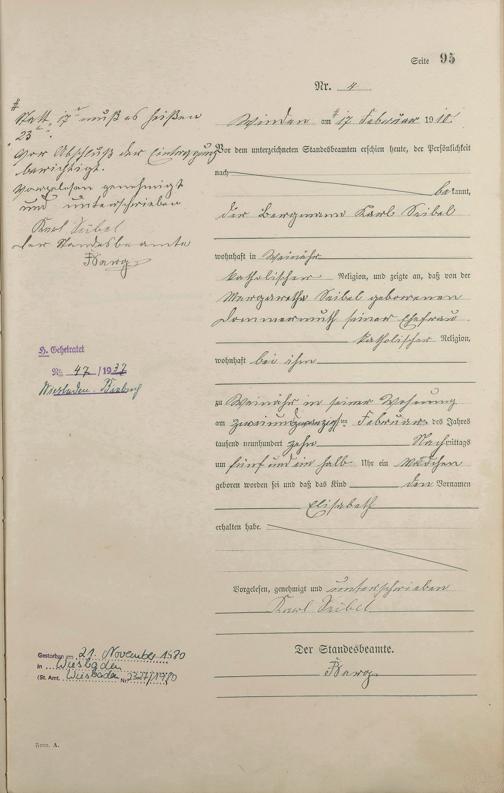 Seite 95
Nr. 4
Winden am # 17 Februar 1910.
Vor dem unterzeichneten Standesbeamten erschien heute, der Persönlichkeit
nach
bekannt,
der Bergmann Karl Seibel
wohnhaft in Weinähr
katholischer Religion, und zeigte an, daß von der
Margaretha Seibel geborenen
Dommermuth seiner Ehefrau
katholischer Religion,
wohnhaft bei ihm
zu Weinähr in seiner Wohnung
am zweiundzwanzigsten Februar des Jahres
tausend neunhundert zehn Nachmittags
um fünf und ein halb Uhr ein Mädchen
geboren worden sei und daß das Kind den Vornamen
Elisabeth
erhalten habe.
Vorgelesen, genehmigt und unterschrieben
Karl Seibel
Der Standesbeamte.
Barg
# Statt 17 muß es heißen
23
Vor Abschluß der Eintragung
berichtigt.
Vorgelesen genehmigt
und unterschrieben
Karl Seibel
Der Standesbeamte
Barg
H. Geheiratet
Nr. 47 /1937
Wiesbaden-Biebrich
Gestorben am 21. November 1980
in Wiesbaden
(St. Amt. Wiesbaden Nr. /1980
Form. A.